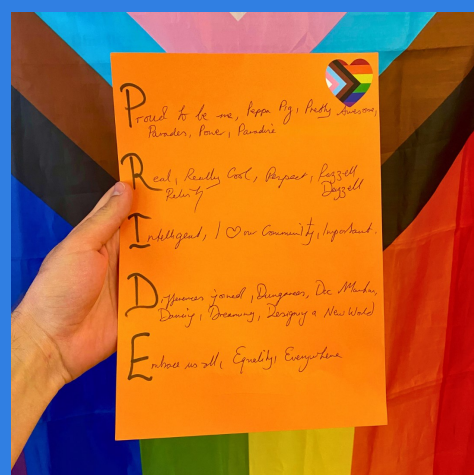 Proud to be me, Peppa Pig, Pretty Awesome,
Parades, Power, Paradise
Real, Really Cool, Respect, Razzell
Dazzell
Intelligent, I ♡ our Community, Important.
Differences joined, Dungarees, Doc Martins,
Dancing, Dreaming, Designing a New World
Embrace us all, Equality, Everywhere